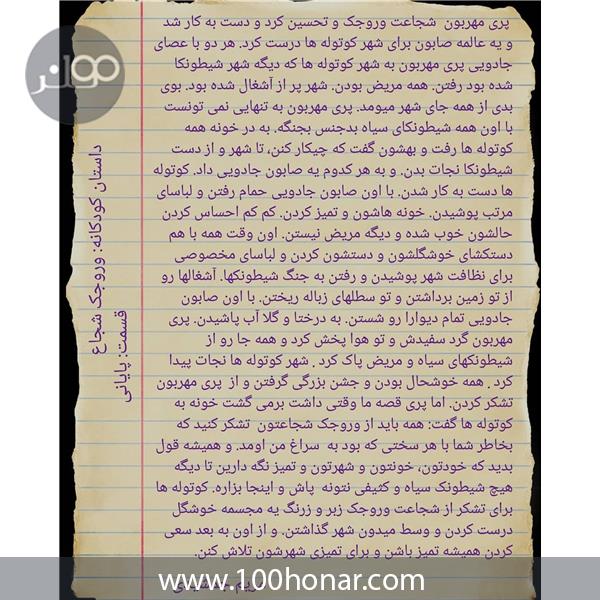 پری مهربون  شجاعت وروجک و تحسین کرد و دست به کار شد
و یه عالمه صابون برای شهر کوتوله ها درست کرد. هر دو با عصای
جادویی پری مهربون به شهر کوتوله ها که دیگه شهر شیطونکا
شده بود رفتن. همه مریض بودن. شهر پر از آشغال شده بود. بوی
بدی از همه جای شهر میومد. پری مهربون به تنهایی نمی تونست
با اون همه شیطونکای سیاه بدجنس بجنگه. به در خونه همه
کوتوله ها رفت و بهشون گفت که چیکار کنن، تا شهر و از دست
شیطونکا نجات بدن. و به هر کدوم یه صابون جادویی داد. کوتوله
ها دست به کار شدن. با اون صابون جادویی حمام رفتن و لباسای
مرتب پوشیدن. خونه هاشون و تمیز کردن. کم کم احساس کردن
حالشون خوب شده و دیگه مریض نیستن. اون وقت همه با هم
دستکشای خوشگلشون و دستشون کردن و لباسای مخصوصی
برای نظافت شهر پوشیدن و رفتن به جنگ شیطونکها. آشغالها رو
از تو زمین برداشتن و تو سطلهای زباله ریختن. با اون صابون
جادویی تمام دیوارا رو شستن. به درختا و گلا آب پاشیدن. پری
مهربون گرد سفیدش و تو هوا پخش کرد و همه جا رو از
شیطونکهای سیاه و مریض پاک کرد . شهر کوتوله ها نجات پیدا
کرد . همه خوشحال بودن و جشن بزرگی گرفتن و از  پری مهربون
تشکر کردن. اما پری قصه ما وقتی داشت برمی گشت خونه به
کوتوله ها گفت: همه باید از وروجک شجاعتون  تشکر کنید که
بخاطر شما با هر سختی که بود به  سراغ من اومد. و همیشه قول
بدید که خودتون، خونتون و شهرتون و تمیز نگه دارین تا دیگه
هیچ شیطونک سیاه و کثیفی نتونه  پاش و اینجا بزاره. کوتوله ها
برای تشکر از شجاعت وروجک زبر و زرنگ یه مجسمه خوشگل
درست کردن و وسط میدون شهر گذاشتن. و از اون به بعد سعی
کردن همیشه تمیز باشن و برای تمیزی شهرشون تلاش کنن.
داستان کودکانه: وروجک شجاع
قسمت: پایانی
www.100honar.com